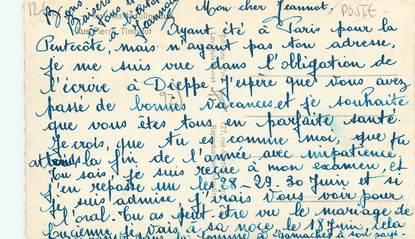 Bons
Baisers
à vous
Mon cher Jeannot,
POSTE
Ayant été à Paris pour la
Pentecôte, mais n'ayant pas ton adresse,
je me suis vue dans l'obligation de
t'écrire à Dieppe. J'espère que vous avez
passé de bonnes vacances, et je souhaite
que vous êtes tous en parfaite santé.
Je crois, que tu es comme moi, que tu
attends la fin de l'année avec impatience.
Tu sais, je suis reçue à mon examen, et
j'en repasse un les 28-29-30 Juin et si
je suis admise, j'irais vous voir pour
l'oral. Tu as peut-être vu le mariage de
Lucienne, je vais à sa noce, le 18 Juin, cela